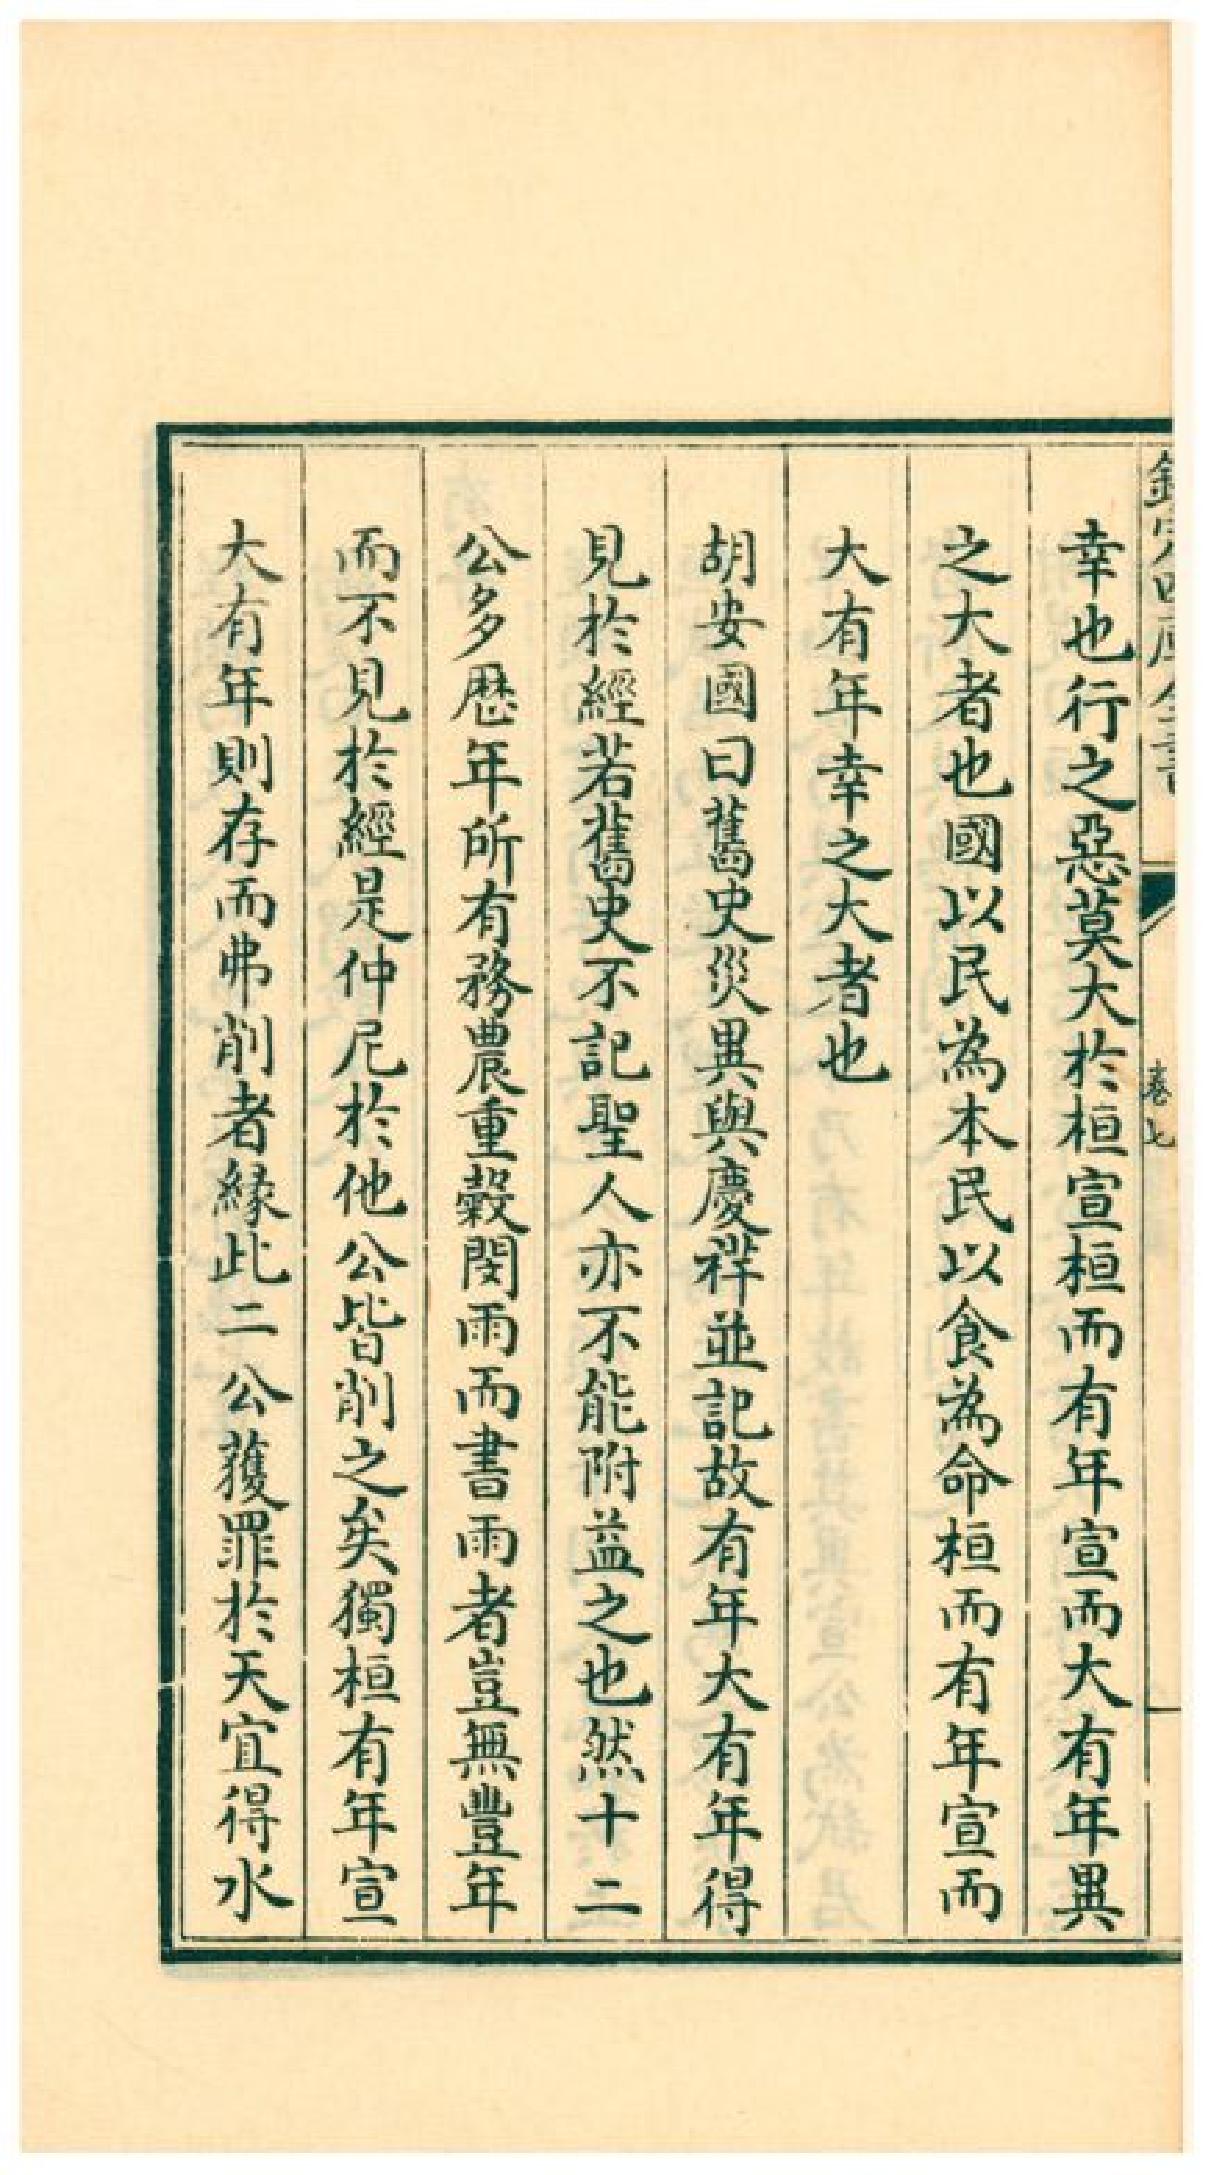 欽定四庫全書
卷七
幸也行之惡莫大於桓宣桓而有年宣而大有年異
之大者也國以民為本民以食為命桓而有年宣而
大有年幸之大者也
胡安國曰舊史災異與慶祥並記故有年大有年得
見於經若舊史不記聖人亦不能附益之也然十二
公多歴年所有務農重穀閔雨而書雨者豈無豐年
而不見於經是仲尼於他公皆削之矣獨桓有年宣
大有年則存而弗削者緣此二公獲罪於天宜得水